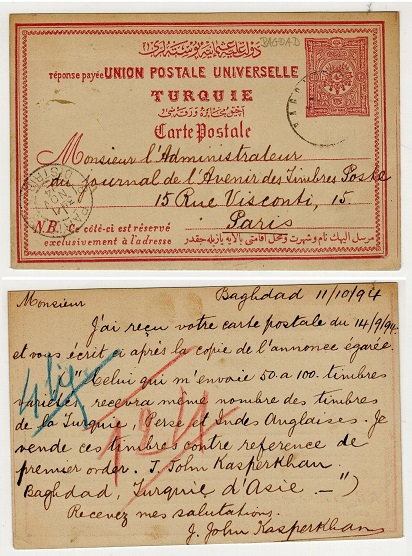 دول علیه عثمانیه پوسته لری
BAGDAD
réponse payée UNION POSTALE UNIVERSELLE
TURQUIE
Carte Postale
Monsieur l'Administrateur
du journal de l'Avenir des Timbres Poste
15 Rue Visconti, 15.
Paris
NB Ce côté-ci est réservé
exclusivement à l'adresse
Monsieur
Baghdad 11/10/94
J'ai reçu votre carte postale du 14/9/94.
et vous écrit ci après la copie de l'annonce égarée.
"Celui qui m'envoie 50 a 100 timbres
variétés recevra même nombre des timbres
de la Turquie, Perse et Indes Anglaises. Je
vende ces timbres contre reference de
premier order. J. John Kasperkhan.
Baghdad, Turquie d'Asie. —")
Recevez mes salutations.
J. John Kasperkhan